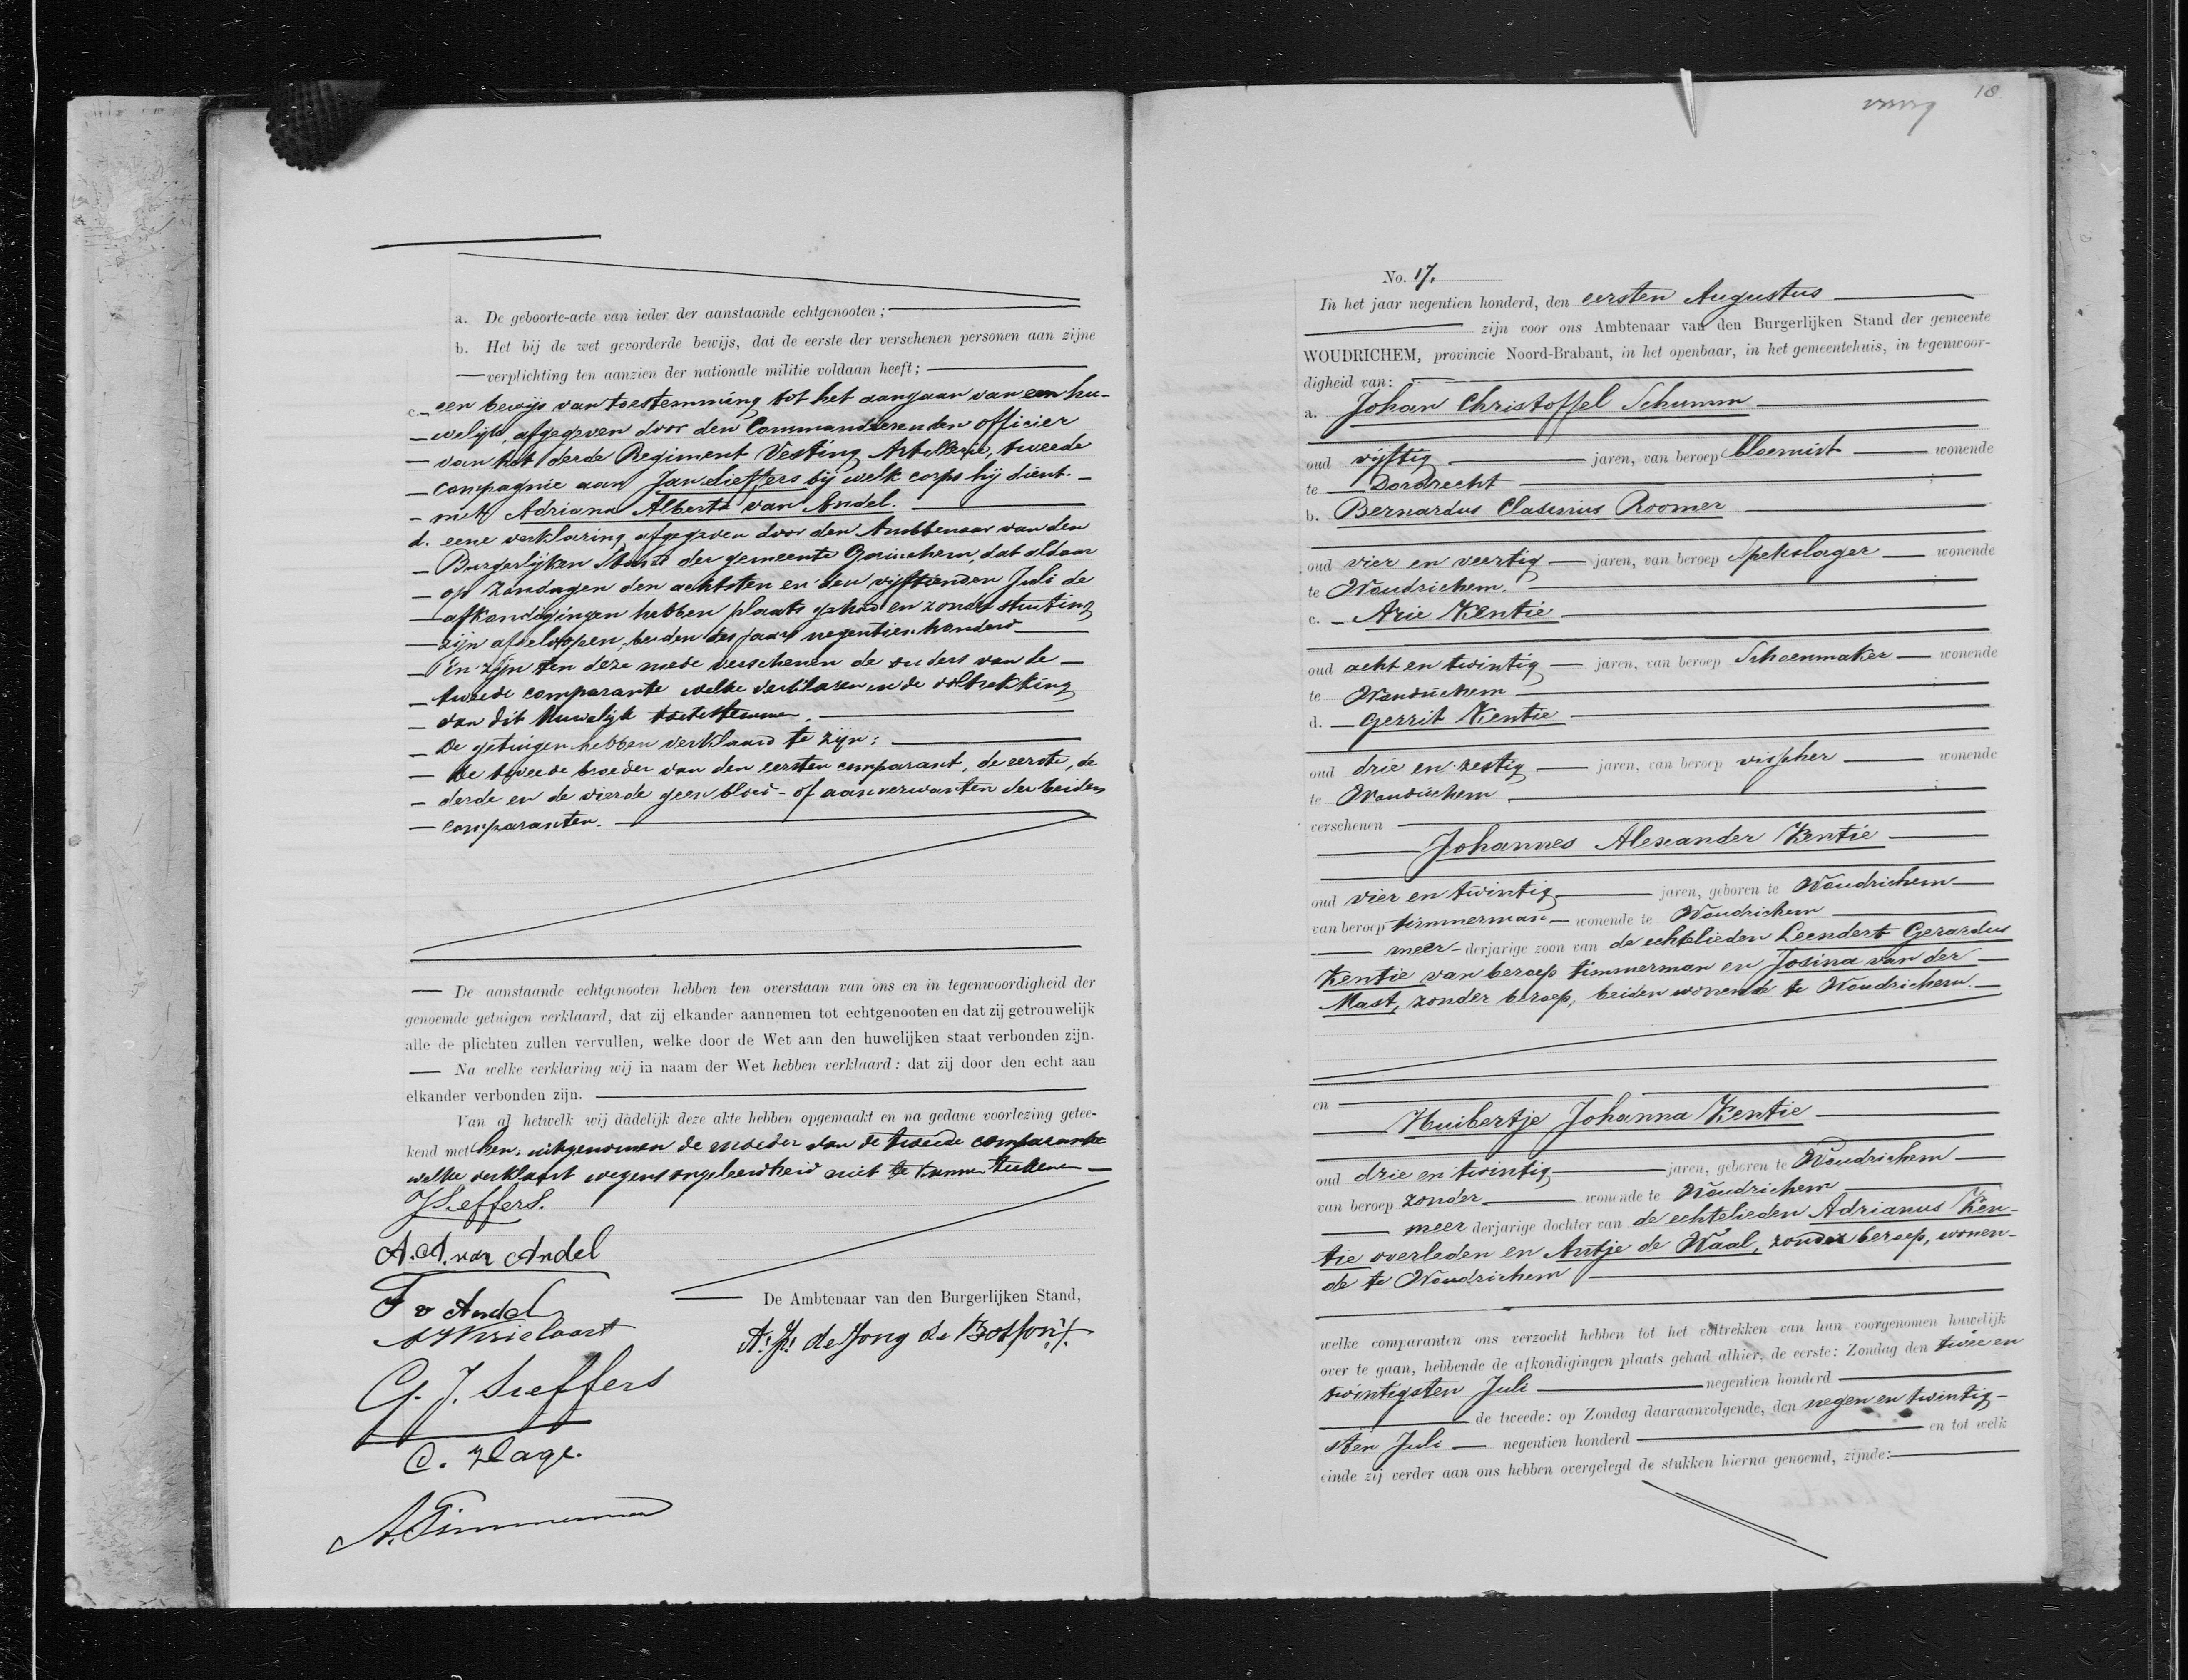 a. De geboorte-acte van ieder der aanstaande echtgenooten;
b. Het bij de wet gevorderde bewijs, dat de eerste der verschenen personen aan zijne
verplichting ten aanzien der nationale militie voldaan heeft;
c. een bewijs van toestemming tot het aangaan van een hu-
welijk, afgegeven door den Commandeerenden officier
van het derde Regiment Vesting Artillerie, tweede
compagnie aan Jan Sieffers bij welk corps hij dient.
met Adriana Alberta van Andel.
d. eene verklaring afgegeven door den Ambtenaar van den
Burgerlijken Stand der gemeente Gorinchem, dat aldaar
op Zondagen den achtsten en den vijftienden Juli de
afkondigingen hebben plaats gehad en zonder stuiting
zijn afgeloopen, beiden des jaars negentien honderd
En zijn ten deze mede verschenen de ouders van de
tweede comparante welke verklaren in de voltrekking
van dit huwelijk toetestemmen.
De getuigen hebben verklaard te zijn:
de tweede broeder van den eersten comparant, de eerste, de
derde en de vierde geen bloed- of aanverwanten der beiden
comparanten.
De aanstaande echtgenooten hebben ten overstaan van ons en in tegenwoordigheid der
genoemde getuigen verklaard, dat zij elkander aannemen tot echtgenooten en dat zij getrouwelijk
alle de plichten zullen vervullen, welke door de Wet aan den huwelijken staat verbonden zijn.
Na welke verklaring wij in naam der Wet hebben verklaard: dat zij door den echt aan
elkander verbonden zijn.
Van al hetwelk wij dadelijk deze akte hebben opgemaakt en na gedane voorlezing getee-
kend met hen, uitgenomen de moeder van de tweede comparante
welke verklaart wegens ongeleerdheid niet te kunnen teekenen
J Sieffers.
A. A. van Andel
F v Andel
De Ambtenaar van den Burgerlijken Stand,
G. J. Sieffers
C. Hage.
A. Timmerman
18
No. 17.
In het jaar negentien honderd, den eersten Augustus
zijn voor ons Ambtenaar van den Burgerlijken Stand der gemeente
WOUDRICHEM, provincie Noord-Brabant, in het openbaar, in het gemeentehuis, in tegenwoor-
digheid van:
a. Johan Christoffel Schumm
oud vijftig jaren, van beroep bloemist wonende
te Dordrecht
b. Bernardus Clasinus Roomer
oud vier en veertig jaren, van beroep Spekslager wonende
te Woudrichem.
c. Arie Kentie
oud acht en twintig jaren, van beroep Schoenmaker wonende
te Woudrichem
d. Gerrit Kentie
oud drie en zestig jaren, van beroep visscher wonende
te Woudrichem
verschenen
Johannes Alexander Kentie
oud vier en twintig jaren, geboren te Woudrichem
van beroep timmerman wonende te Woudrichem
meer-derjarige zoon van de echtelieden Leendert Gerardus
Kentie van beroep timmerman en Josina van der
Mast, zonder beroep, beiden wonende te Woudrichem.
en
Huibertje Johanna Kentie
oud drie en twintig jaren, geboren te Woudrichem
van beroep zonder wonende te Woudrichem
meer derjarige dochter van de echtelieden Adrianus Ken-
tie overleden en Antje de Waal, zonder beroep, wonen-
de te Woudrichem
welke comparanten ons verzocht hebben tot het voltrekken van hun voorgenomen huwelijk
over te gaan, hebbende de afkondigingen plaats gehad alhier, de eerste: Zondag den twee en
twintigsten Juli negentien honderd
de tweede: op Zondag daaraanvolgende, den negen en twintig-
sten Juli negentien honderd en tot welk
einde zij verder aan ons hebben overgelegd de stukken hierna genoemd, zijnde: